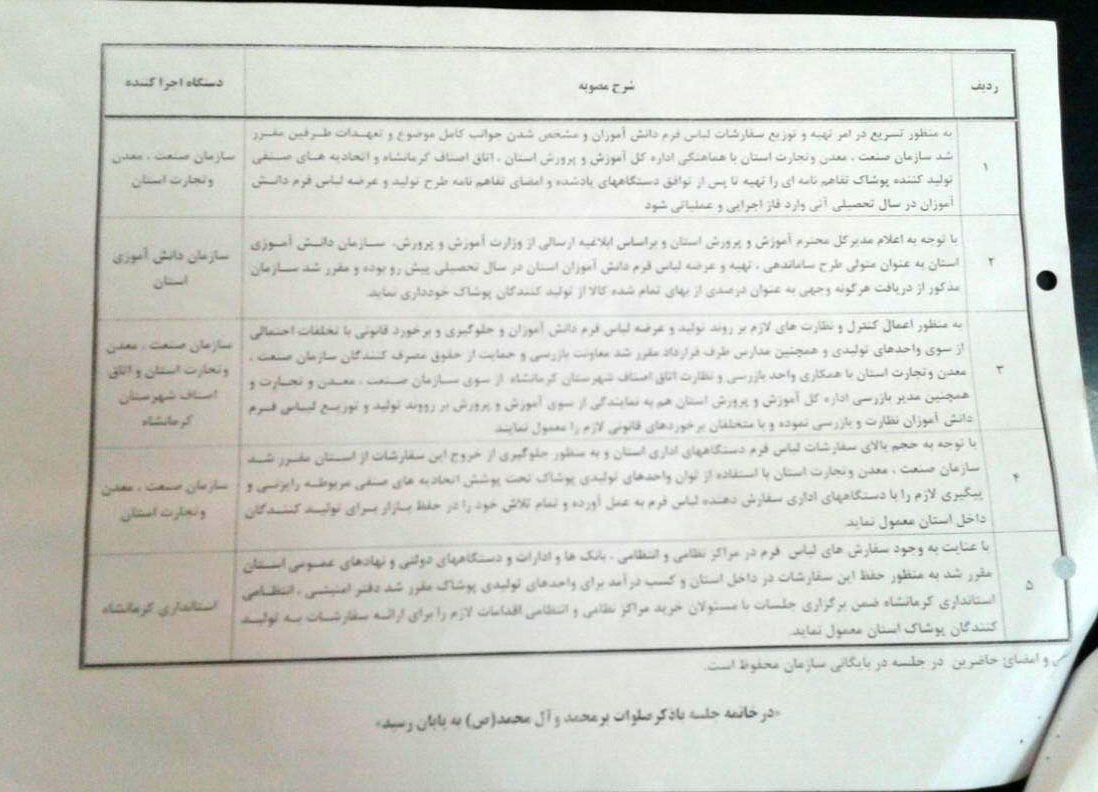 ردیف شرح مصوبه دستگاه اجرا کننده
۱
به منظور تسریع در امر تهیه و توزیع سفارشات لباس فرم دانش آموزان و مشخص شدن جوانب کامل موضوع و تعهدات طرفین مقرر
شد سازمان صنعت ، معدن وتجارت استان با هماهنگی اداره کل آموزش و پرورش استان ، اتاق اصناف کرمانشاه و اتحادیه های صنفی
تولید کننده پوشاک تفاهم نامه ای را تهیه تا پس از توافق دستگاههای یادشده و امضای تفاهم نامه طرح تولید و عرضه لباس فرم دانش
آموزان در سال تحصیلی آتی وارد فاز اجرایی و عملیاتی شود
سازمان صنعت ، معدن
وتجارت استان
۲
با توجه به اعلام مدیرکل محترم آموزش و پرورش استان و براساس ابلاغیه ارسالی از وزارت آموزش و پرورش، سازمان دانش آموزی
استان به عنوان متولی طرح ساماندهی ، تهیه و عرضه لباس فرم دانش آموزان استان در سال تحصیلی پیش رو بوده و مقرر شد سازمان
مذکور از دریافت هرگونه وجهی به عنوان درصدی از بهای تمام شده کالا از تولید کنندگان پوشاک خودداری نماید.
سازمان دانش آموزی
استان
۳
به منظور اعمال کنترل و نظارت های لازم بر روند تولید و عرضه لباس فرم دانش آموزان و جلوگیری و برخورد قانونی با تخلفات احتمالی
از سوی واحدهای تولیدی و همچنین مدارس طرف قرارداد مقرر شد معاونت بازرسی و حمایت از حقوق مصرف کنندگان سازمان صنعت ،
معدن وتجارت استان با همکاری واحد بازرسی و نظارت اتاق اصناف شهرستان کرمانشاه از سوی سازمان صنعت ، معدن و تجارت و
همچنین مدیر بازرسی اداره کل آموزش و پرورش استان هم به نمایندگی از سوی آموزش و پرورش بر رووند تولید و توزیع لباس فرم
دانش آموزان نظارت و بازرسی نموده و با متخلفان برخوردهای قانونی لازم را معمول نمایند
سازمان صنعت ، معدن
وتجارت استان و اتاق
اصناف شهرستان
کرمانشاه
۴
با توجه به حجم بالای سفارشات لباس فرم دستگاههای اداری استان و به منظور جلوگیری از خروج این سفارشات از استان مقرر شد
سازمان صنعت ، معدن وتجارت استان با استفاده از توان واحدهای تولیدی پوشاک تحت پوشش اتحادیه های صنفی مربوطه رایزنی و
پیگیری لازم را با دستگاههای اداری سفارش دهنده لباس فرم به عمل آورده و تمام تلاش خود را در حفظ بازار برای تولید کنندگان
داخل استان معمول نماید.
سازمان صنعت ، معدن
وتجارت استان
۵
با عنایت به وجود سفارش های لباس فرم در مراکز نظامی و انتظامی ، بانک ها و ادارات و دستگاههای دولتی و نهادهای عمومی استان
مقرر شد به منظور حفظ این سفارشات در داخل استان و کسب درآمد برای واحدهای تولیدی پوشاک مقرر شد دفتر امنیتی ، انتظامی
استانداری کرمانشاه ضمن برگزاری جلسات با مسئولان خرید مراکز نظامی و انتظامی اقدامات لازم را برای ارائه سفارشات به تولید
کنندگان پوشاک استان معمول نماید.
استانداری کرمانشاه
و امضائ حاضرین در جلسه در بایگانی سازمان محفوظ است.
«در خاتمه جلسه باذکر صلوات بر محمد و آل محمد(ص) به پایان رسید»